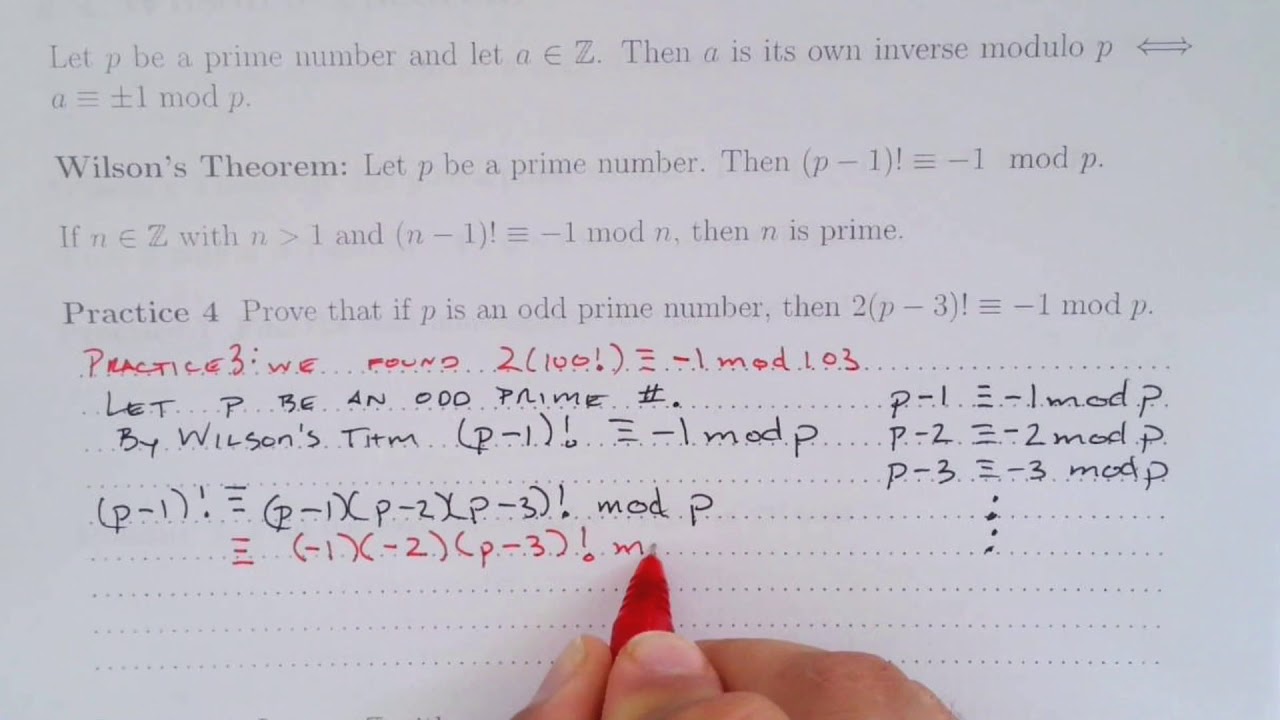 Let p be a prime number and let a ∈ ℤ. Then a is its own inverse modulo p ⟺
a ≡ ±1 mod p.
Wilson's Theorem: Let p be a prime number. Then (p − 1)! ≡ −1 mod p.
If n ∈ ℤ with n > 1 and (n − 1)! ≡ −1 mod n, then n is prime.
Practice 4 Prove that if p is an odd prime number, then 2(p − 3)! ≡ −1 mod p.
PRACTICE 3: WE FOUND 2(100!) ≡ -1 mod 103
LET P BE AN ODD PRIME #.
p-1 ≡ -1 mod p
By WILSON'S THM (p-1)! ≡ -1 mod p
p-2 ≡ -2 mod p
p-3 ≡ -3 mod p
(p-1)! ≡ (p-1)(p-2)(p-3)! mod p
≡ (-1)(-2)(p-3)! m